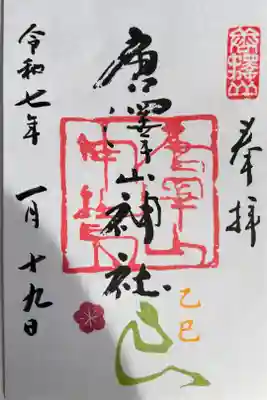 唐澤山
奉拝
唐澤山神社
乙巳
令和七年 一月 十九日